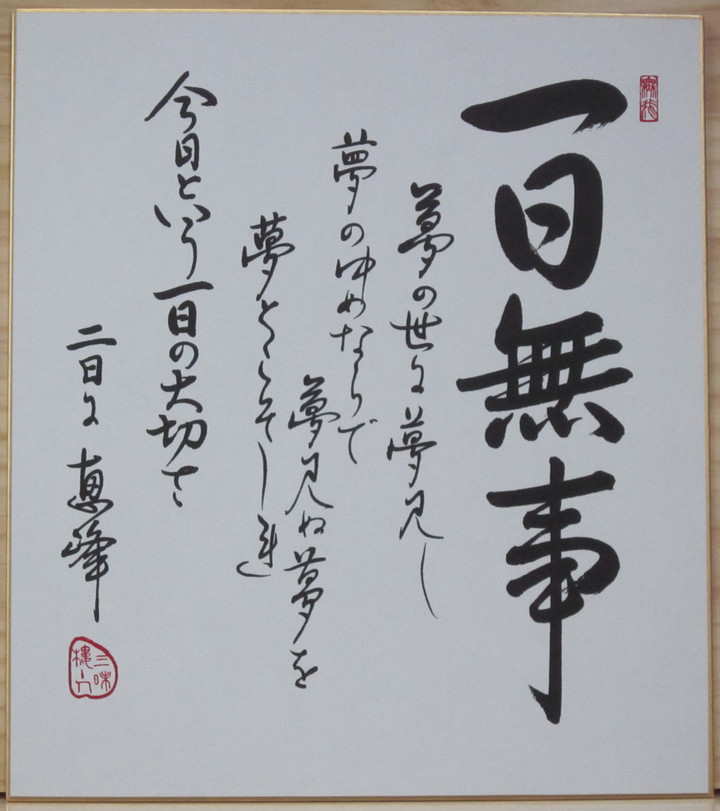 一日無事
夢の世に夢見し
夢のゆめならで
夢見ぬ夢を
夢とこそしれ
今日という一日の大切さ
二日に 恵峰